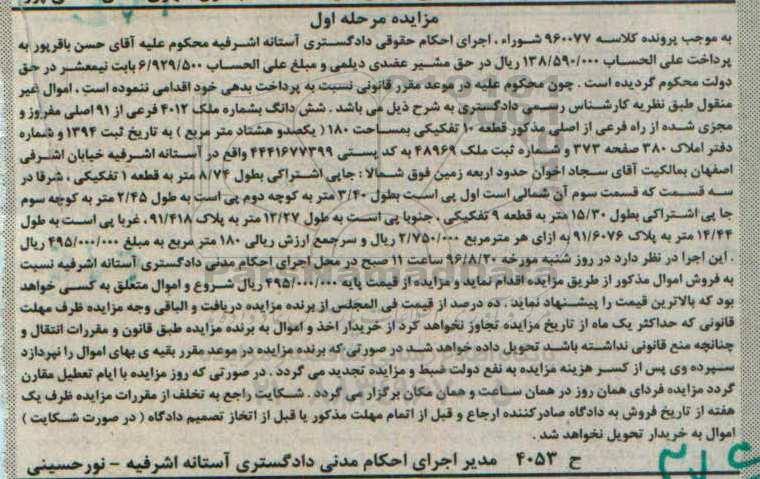 مزایده مرحله اول
به موجب پرونده کلاسه ۹۶۰۰۷۷ شوراء ، اجرای احکام حقوقی دادگستری آستانه اشرفیه محکوم علیه آقای حسن باقرپور به
پرداخت علی الحساب ۱۳۸/۵۹۰/۰۰۰ ریال در حق مشیر عضدی دیلمی و مبلغ علی الحساب ۶/۹۲۹/۵۰۰ بابت نیمعشر در حق
دولت محکوم گردیده است . چون محکوم علیه در موعد مقرر قانونی نسبت به پرداخت بدهی خود اقدامی ننموده است ، اموال غیر
منقول طبق نظریه کارشناس رسمی دادگستری به شرح ذیل می باشد . شش دانگ بشماره ملک ۴۰۱۲ فرعی از ۹۱ اصلی مفروز و
مجزی شده از راه فرعی از اصلی مذکور قطعه ۱۰ تفکیکی بمساحت ۱۸۰ ( یکصدو هشتاد متر مربع ) به تاریخ ثبت ۱۳۹۴ و شماره
دفتر املاک ۳۸۰ صفحه ۳۷۳ و شماره ثبت ملک ۴۸۹۶۹ به کد پستی ۴۴۴۱۶۷۷۳۹۹ واقع در آستانه اشرفیه خیابان اشرفی
اصفهان بمالکیت آقای سجاد اخوان حدود اربعه زمین فوق شمالا : جاپی اشتراکی بطول ۸/۷۴ متر به قطعه ۱ تفکیکی ، شرقا در
سه قسمت که قسمت سوم آن شمالی است اول پی است بطول ۳/۴۰ متر به کوچه دوم پی است به طول ۲/۴۵ متر به کوچه سوم
جا پی اشتراکی بطول ۱۵/۳۰ متر به قطعه ۹ تفکیکی ، جنوبا پی است به طول ۱۲/۲۷ متر به پلاک ۹۱/۴۱۸، غربا پی است به طول
۱۴/۴۴ متر به پلاک ۹۱/۶۰۷۶ به ازای هر مترمربع ۲/۷۵۰/۰۰۰ ریال و سرجمع ارزش ریالی ۱۸۰ متر مربع به مبلغ ۴۹۵/۰۰۰/۰۰۰ ریال
. این اجرا در نظر دارد در روز شنبه مورخه ۹۶/۸/۲۰ ساعت ۱۱ صبح در محل اجرای احکام مدنی دادگستری آستانه اشرفیه نسبت
به فروش اموال مذکور از طریق مزایده اقدام نماید و مزایده از قیمت پایه ۴۹۵/۰۰۰/۰۰۰ ریال شروع و اموال متعلق به کسی خواهد
بود که بالاترین قیمت را پیشنهاد نماید . ده درصد از قیمت فی المجلس از برنده مزایده دریافت و الباقی وجه مزایده ظرف مهلت
قانونی که حداکثر یک ماه از تاریخ مزایده تجاوز نخواهد کرد از خریدار اخذ و اموال به برنده مزایده طبق قانون و مقررات انتقال و
چنانچه منع قانونی نداشته باشد تحویل داده خواهد شد در صورتی که برنده مزایده در موعد مقرر بقیه ی بهای اموال را نپردازد
سپرده وی پس از کسر هزینه مزایده به نفع دولت ضبط و مزایده تجدید می گردد . در صورتی که روز مزایده با ایام تعطیل مقارن
گردد مزایده فردای همان روز در همان ساعت و همان مکان برگزار می گردد . شکایت راجع به تخلف از مقررات مزایده ظرف یک
هفته از تاریخ فروش به دادگاه صادرکننده ارجاع و قبل از اتمام مهلت مذکور یا قبل از اتخاز تصمیم دادگاه ( در صورت شکایت )
اموال به خریدار تحویل نخواهد شد .
ح ۴۰۵۳ مدیر اجرای احکام مدنی دادگستری آستانه اشرفیه - نورحسینی